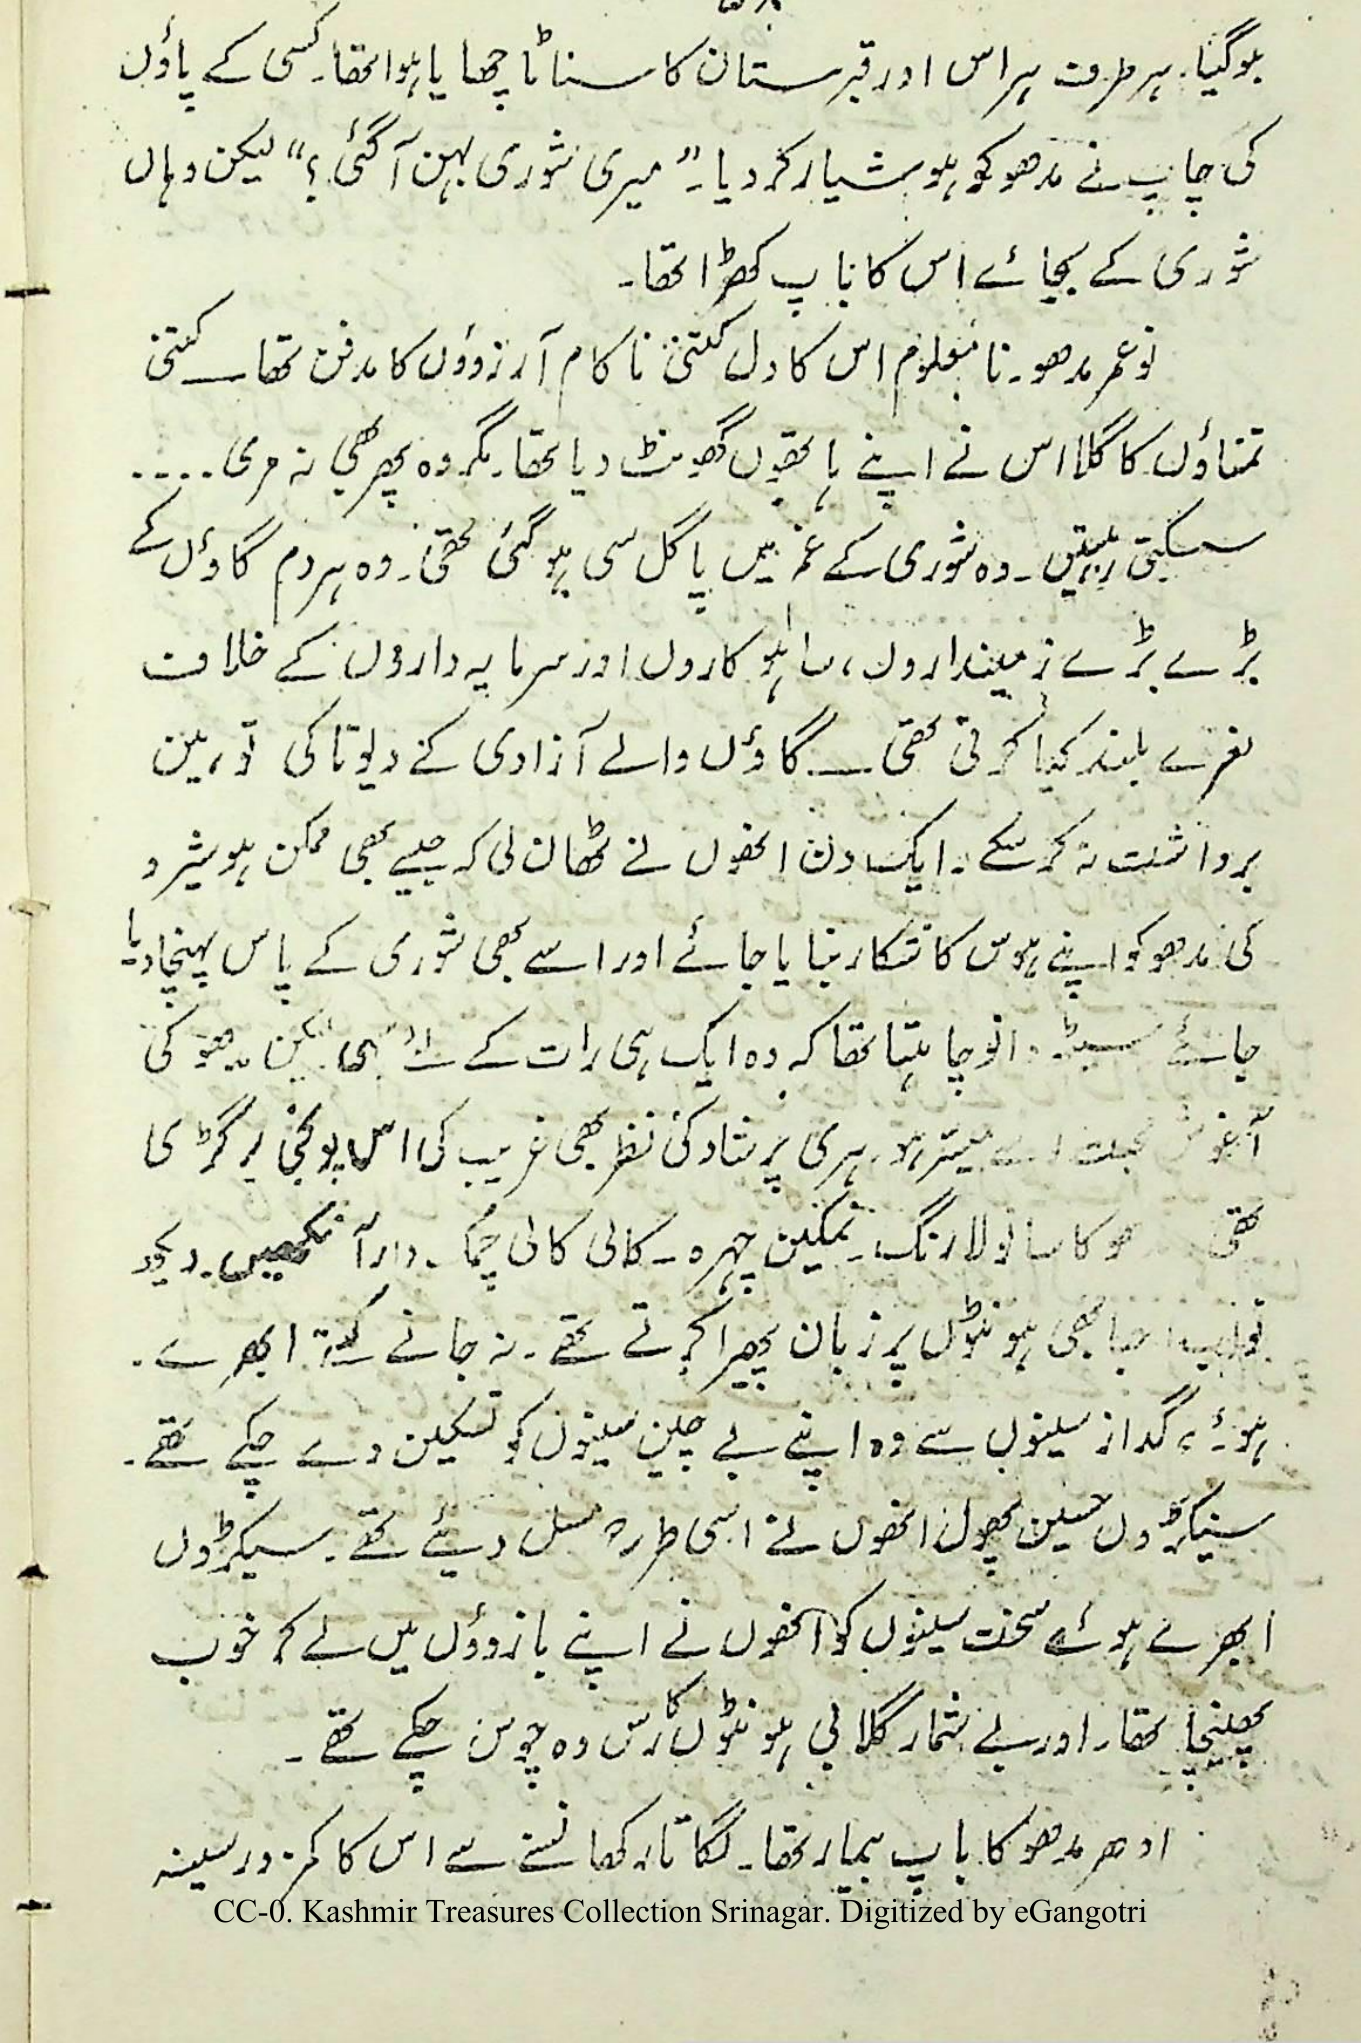 ہوگیا۔ ہر طرف ہراس اور قبرستان کا سناٹا چھایا ہوا تھا۔ کسی کے پاؤں
کی چاپ نے مدھو کو ہوشیار کر دیا۔ ”میری شوری بہن آگئی؟“ لیکن وہاں
شوری کے بجائے اس کا باپ کھڑا تھا۔
نوعمر مدھو۔ نامعلوم اس کا دل کتنی ناکام آرزوؤں کا مدفن تھا۔۔۔ کتنی
تمناؤں کا گلا اس نے اپنے ہاتھوں گھونٹ دیا تھا۔ مگر وہ پھر بھی نہ مری ....
سسکتی رہتیں۔ وہ شوری کے غم میں پاگل سی ہوگئی تھی۔ وہ ہر دم گاؤں کے
بڑے بڑے زمینداروں، ساہوکاروں اور سرمایہ داروں کے خلاف
نعرے بلند کیا کرتی تھی۔۔۔ گاؤں والے آزادی کے دیوتا کی توہین
برداشت نہ کرسکے۔ ایک دن انھوں نے ٹھان لی کہ جیسے بھی ممکن ہو شیرو
کی مدھو کو اپنے ہوس کا شکار بنایا جائے اور اسے بھی شوری کے پاس پہنچا دیا
جائے سیٹھ تو چاہتا تھا کہ وہ ایک ہی رات کے لئے بھی لیکن مدھو کی
آغوش محبت اسے میسر ہو۔ ہری پرشاد کی نظر بھی غریب کی اس پونجی پر گڑی
تھی کا سانولا رنگ۔ نمکین چہرہ۔ کالی کالی چمک۔ دار آنکھیں۔ دیکھ
بھی ہونٹوں پر زبان پھیرا کرتے تھے۔ نہ جانے کتنے ابھرے۔
ہوئے، گداز سینوں سے وہ اپنے بے چین سینوں کو تسکین دے چکے تھے۔
سینکڑوں حسین پھول انھوں نے اسی طرح مسل دیئے تھے۔ سیکڑوں
ابھرے ہوئے سخت سینوں کو انھوں نے اپنے بازوؤں میں لے کر خوب
بھینچا تھا۔ اور بے شمار گلابی ہونٹوں کا رس وہ چوس چکے تھے۔
ادھر مدھو کا باپ بیمار تھا۔ لگاتار کھانسنے سے اس کا کمزور سینہ
CC-0. Kashmir Treasures Collection Srinagar. Digitized by eGangotri